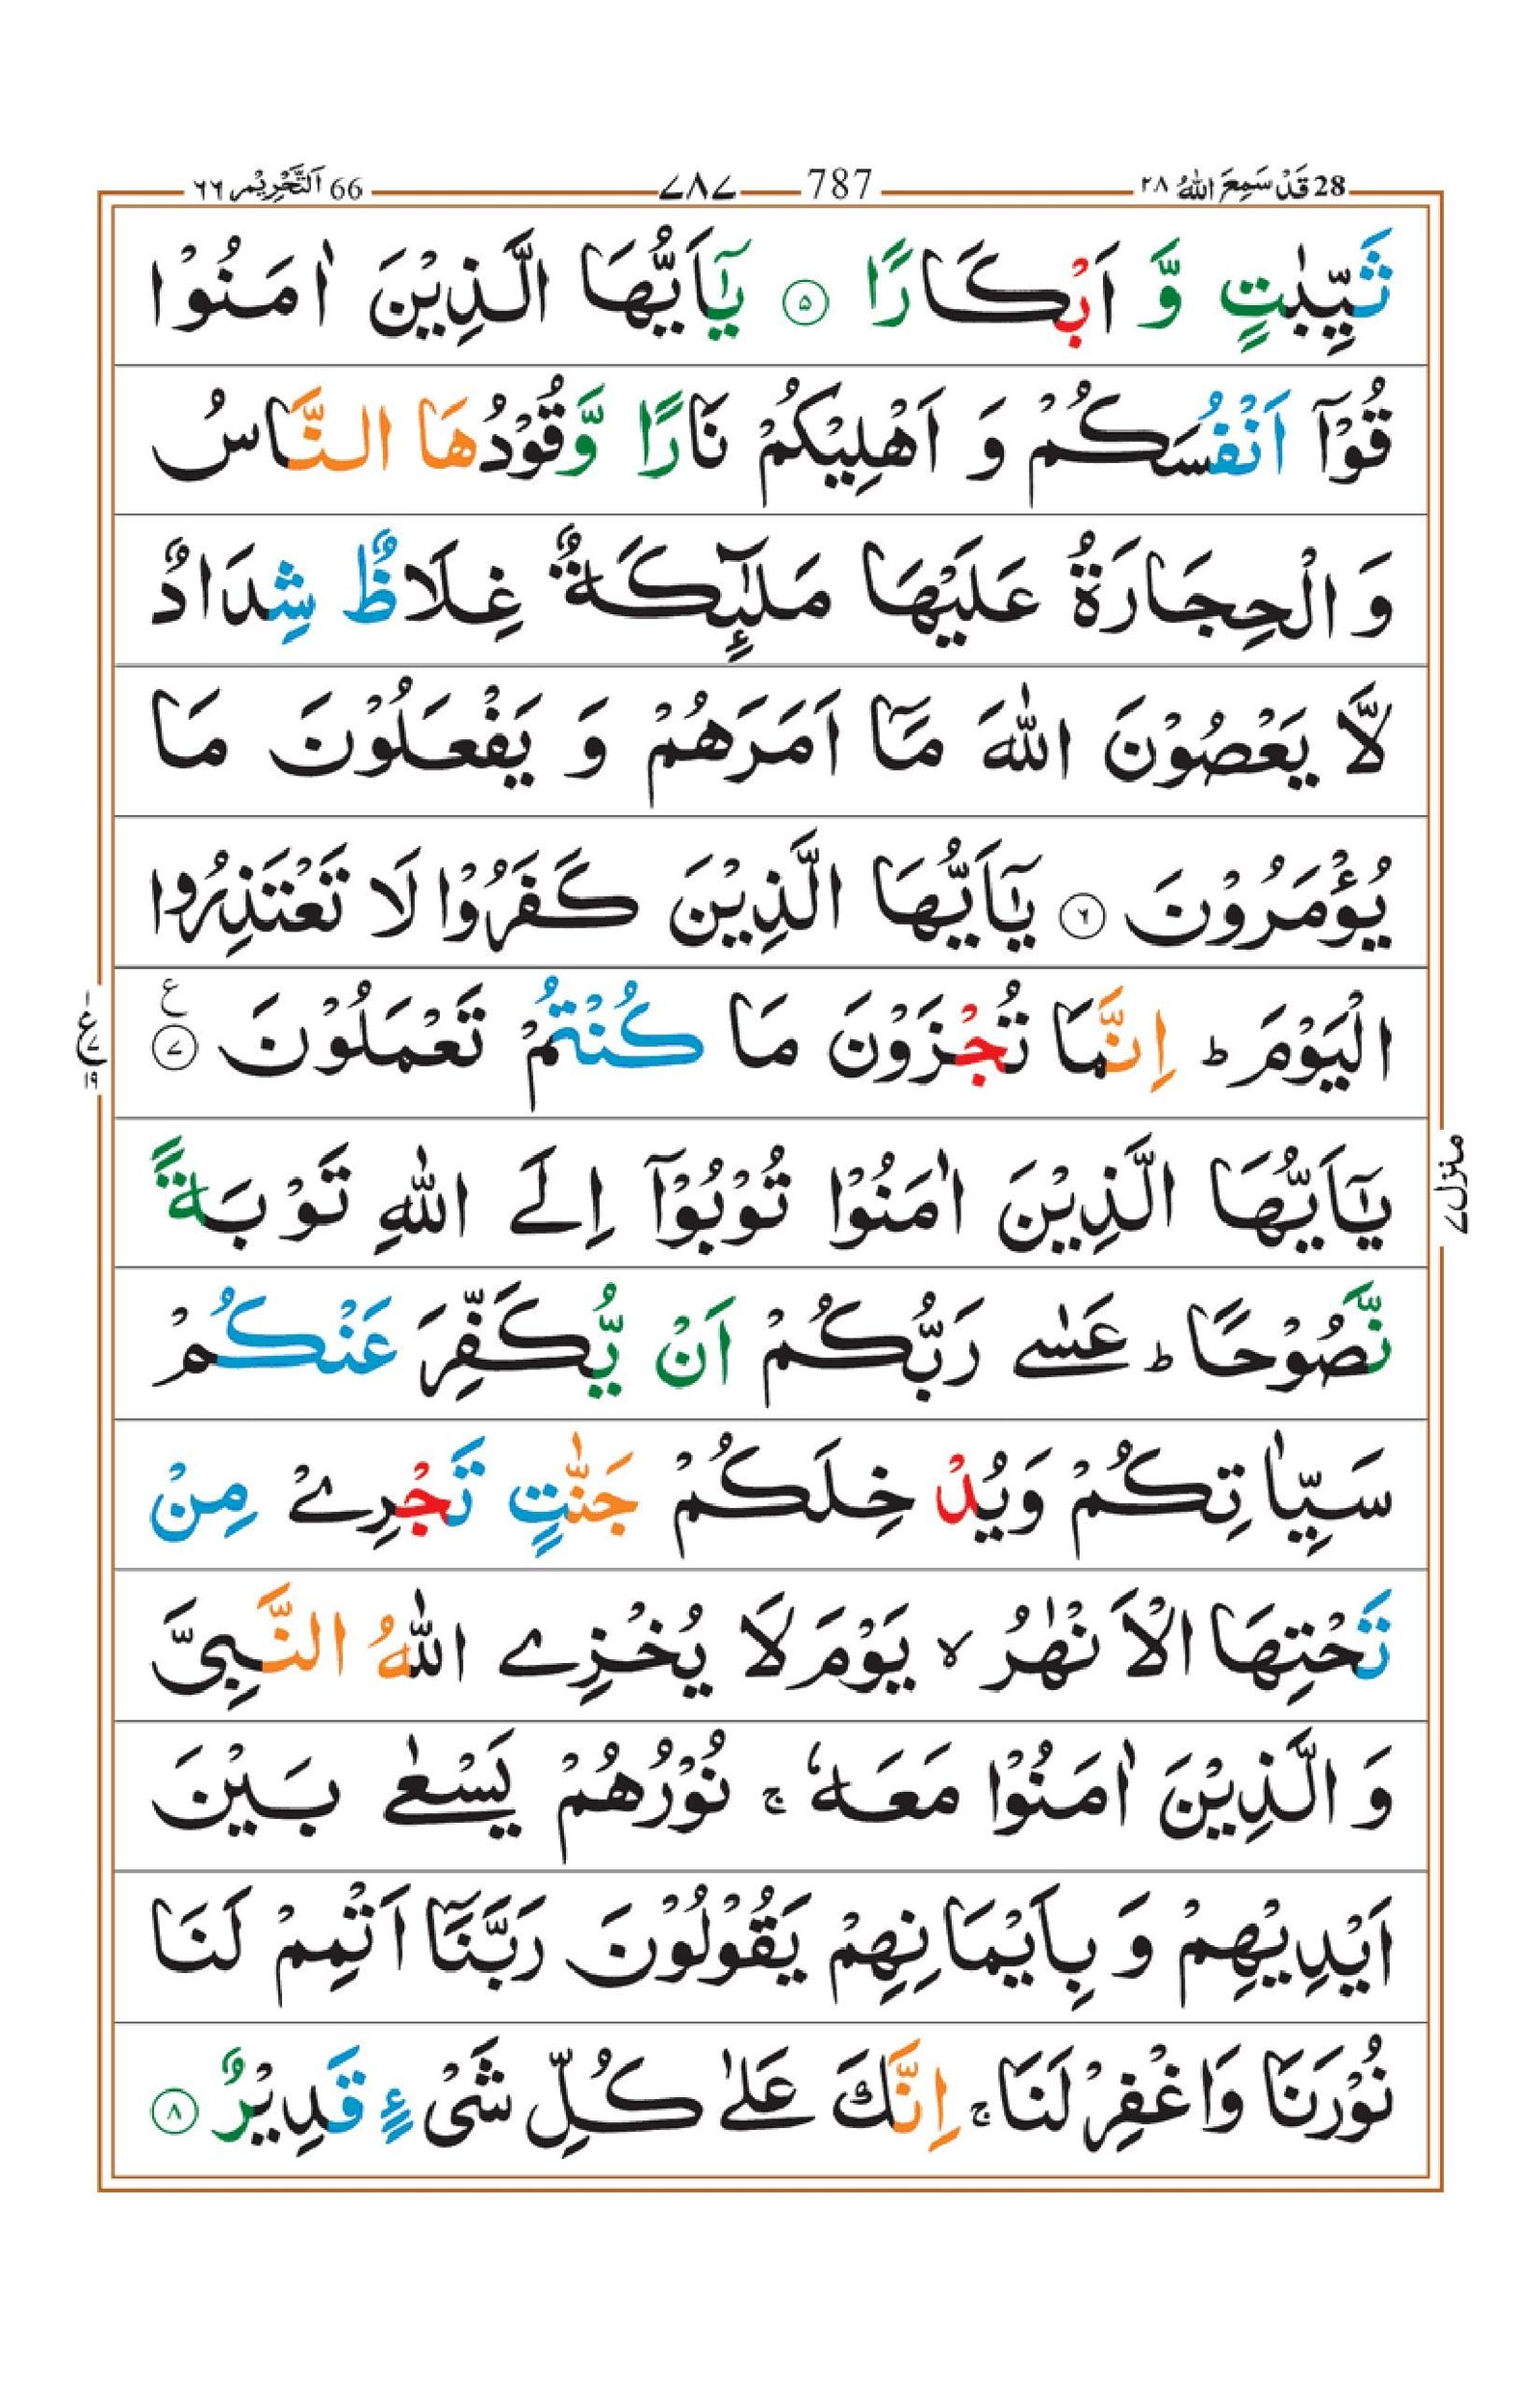 28 قَدْ سَمِعَ اللّٰهُ ۲۸
787 ۷۸۷
66 اَلتَّحْرِيْم ۶۶
ثَيِّبٰتٍ وَّ اَبْكَارًا ۵ يٰۤاَيُّهَا الَّذِيْنَ اٰمَنُوْا
قُوْۤا اَنْفُسَكُمْ وَ اَهْلِيْكُمْ نَارًا وَّقُوْدُهَا النَّاسُ
وَ الْحِجَارَةُ عَلَيْهَا مَلٰٓئِكَةٌ غِلَاظٌ شِدَادٌ
لَّا يَعْصُوْنَ اللّٰهَ مَاۤ اَمَرَهُمْ وَ يَفْعَلُوْنَ مَا
يُؤْمَرُوْنَ ۶ يٰۤاَيُّهَا الَّذِيْنَ كَفَرُوْا لَا تَعْتَذِرُوا
الْيَوْمَ ؕ اِنَّمَا تُجْزَوْنَ مَا كُنْتُمْ تَعْمَلُوْنَ ۷ ع
۱ ع ۷ ۱۹
يٰۤاَيُّهَا الَّذِيْنَ اٰمَنُوْا تُوْبُوْۤا اِلَى اللّٰهِ تَوْبَةً
منزل ۷
نَّصُوْحًا ؕ عَسٰى رَبُّكُمْ اَنْ يُّكَفِّرَ عَنْكُمْ
سَيِّاٰتِكُمْ وَيُدْخِلَكُمْ جَنّٰتٍ تَجْرِيْ مِنْ
تَحْتِهَا الْاَنْهٰرُ ۙ يَوْمَ لَا يُخْزِى اللّٰهُ النَّبِىَّ
وَ الَّذِيْنَ اٰمَنُوْا مَعَهٗ ۚ نُوْرُهُمْ يَسْعٰى بَيْنَ
اَيْدِيْهِمْ وَ بِاَيْمَانِهِمْ يَقُوْلُوْنَ رَبَّنَاۤ اَتْمِمْ لَنَا
نُوْرَنَا وَاغْفِرْ لَنَا ۚ اِنَّكَ عَلٰى كُلِّ شَىْءٍ قَدِيْرٌ ۸